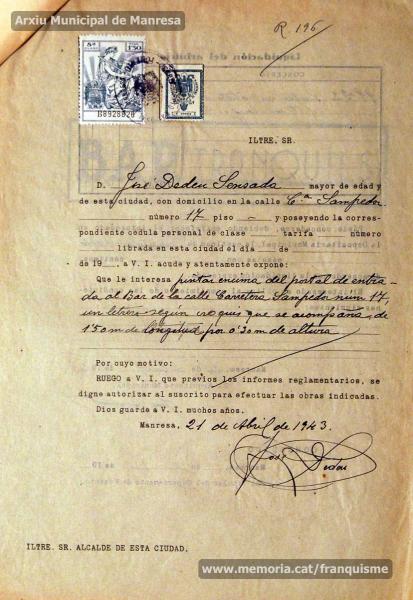 Arxiu Municipal de Manresa
R. 196
8ª
1'50
B8928820
ILTRE. SR.
D. José Dedeu Sensada mayor de edad y
de esta ciudad, con domicilio en la calle Cª Sampedor
número 17 piso - y poseyendo la corres-
pondiente cédula personal de clase tarifa número
librada en esta ciudad el día de
de 19 , a V. I. acude y atentamente expone:
Que le interesa pintar encima del portal de entra-
da al Bar de la calle Carretera Sampedor num 17,
un letrero según croquis que se acompaña, de
1'50 m de longitud por 0'30 m de altura
Por cuyo motivo:
RUEGO a V. I. que previos los informes reglamentarios, se
digne autorizar al suscrito para efectuar las obras indicadas.
Dios guarde a V. I. muchos años.
Manresa, 21 de Abril de 1943.
José Dedeu
ILTRE. SR. ALCALDE DE ESTA CIUDAD.
www.memoria.cat/franquisme